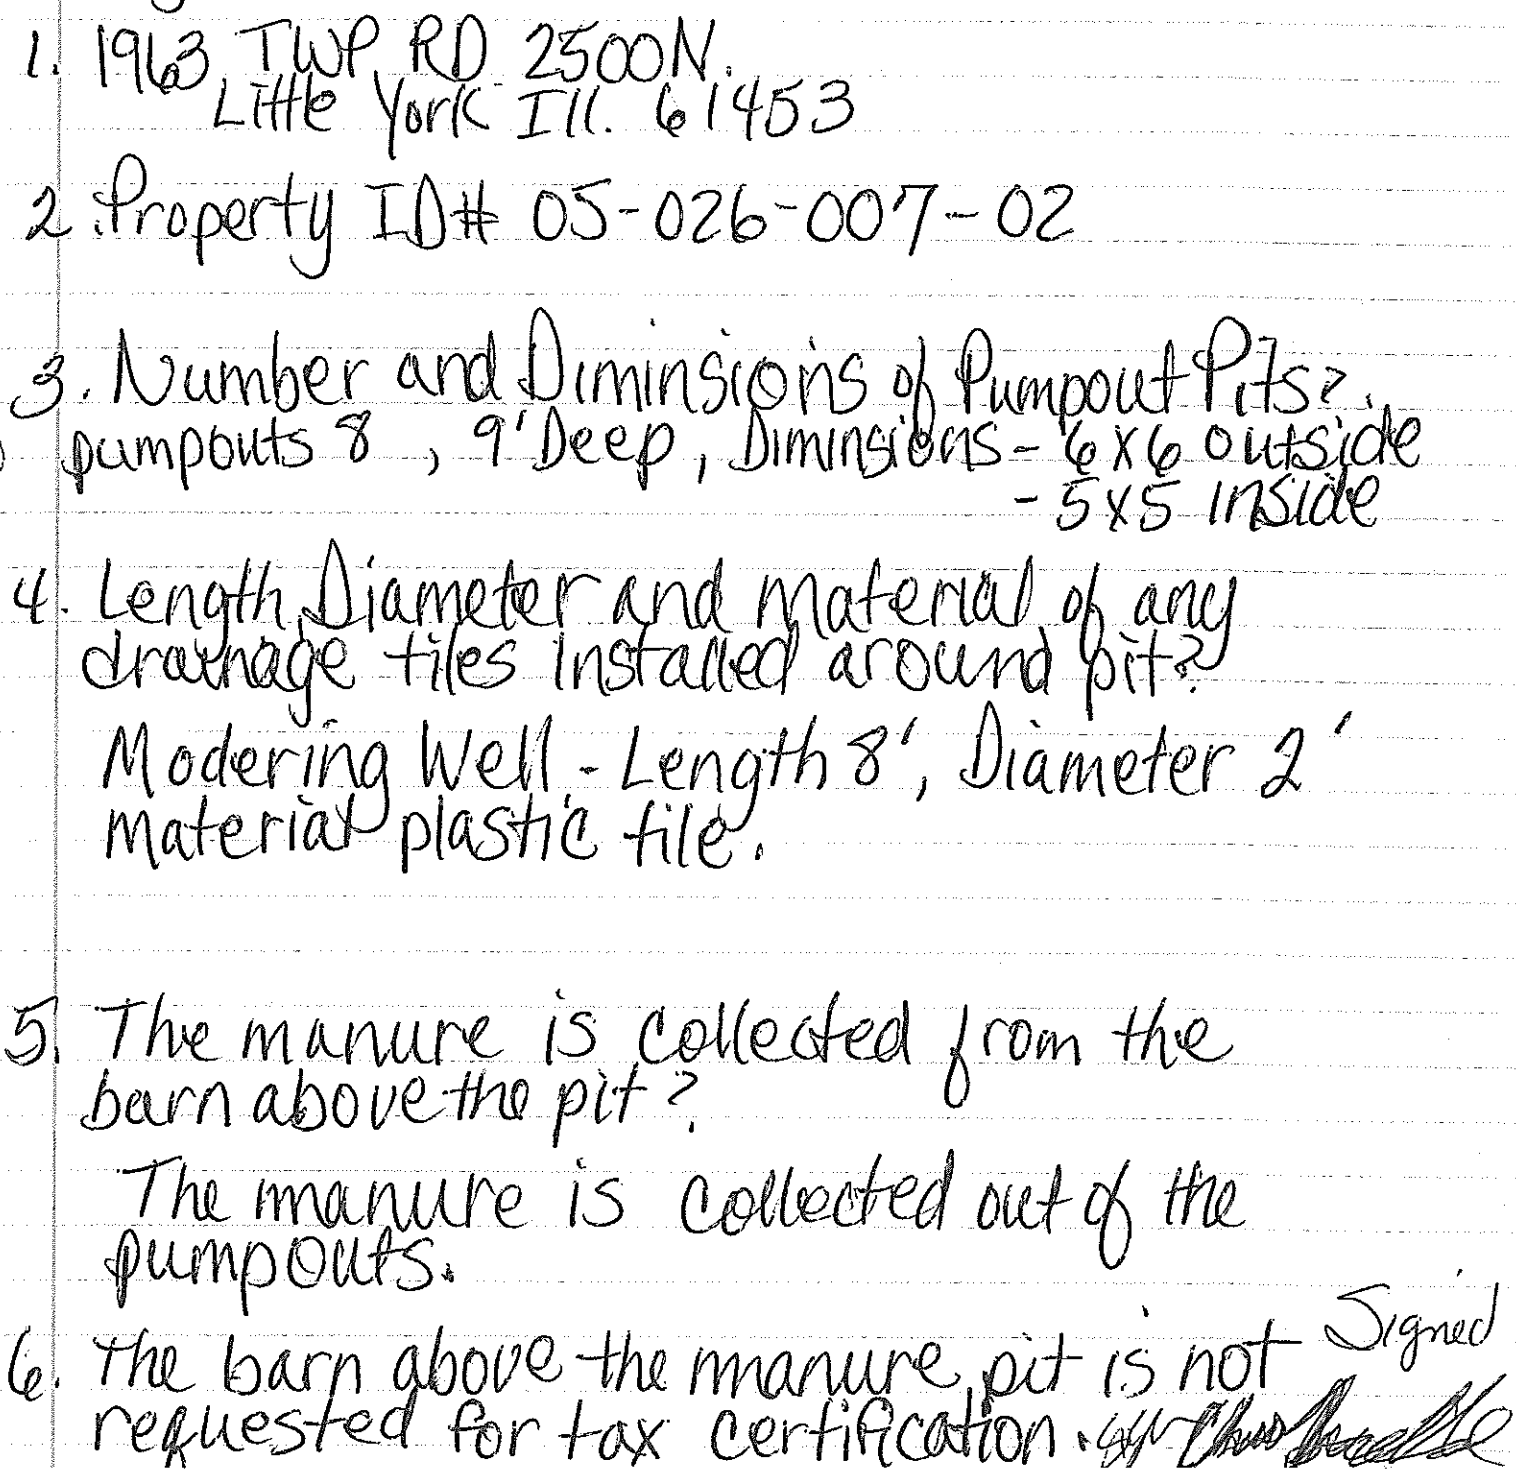 1. 1963 TWP RD 2500N.
Little York Ill. 61453
2. Property ID# 05-026-007-02
3. Number and Diminsions of Pumpout Pits?
pumpouts 8, 9' Deep, Diminsions - 6x6 outside
- 5x5 inside
4. Length, Diameter and material of any
drainage tiles installed around pit?
Modering Well - Length 8', Diameter 2'
material plastic tile.
5. The manure is collected from the
barn above the pit?
The manure is collected out of the
pumpouts.
Signed
6. The barn above the manure pit is not
requested for tax certification.